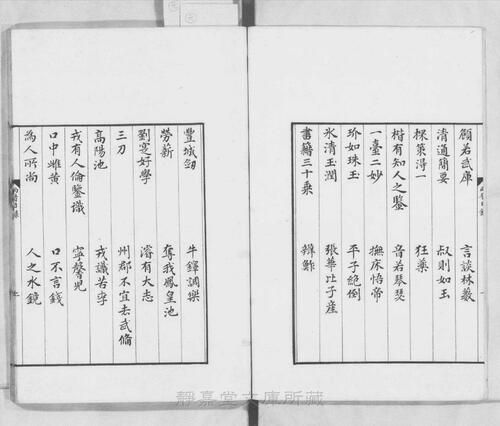 顧若武庫　言談林藪
清通簡要　叔則如玉
探策得一　狂藥
楷有知人之鑒　音若琴瑟
一臺二妙　撫床悟帝
玠如珠玉　平子絶倒
氷清玉潤　張華比子産
書籍三十乘　辨鮓
豐城劒　牛鐸調樂
勞薪　奪我鳳皇池
劉寔好學　濬有大志
三刀　州郡不宜去武備
高陽池　戎識苦李
戎有人倫鑒識　寧馨兒
口中雌黄　口不言錢
為人所尚　人之水鏡
靜嘉堂文庫所藏